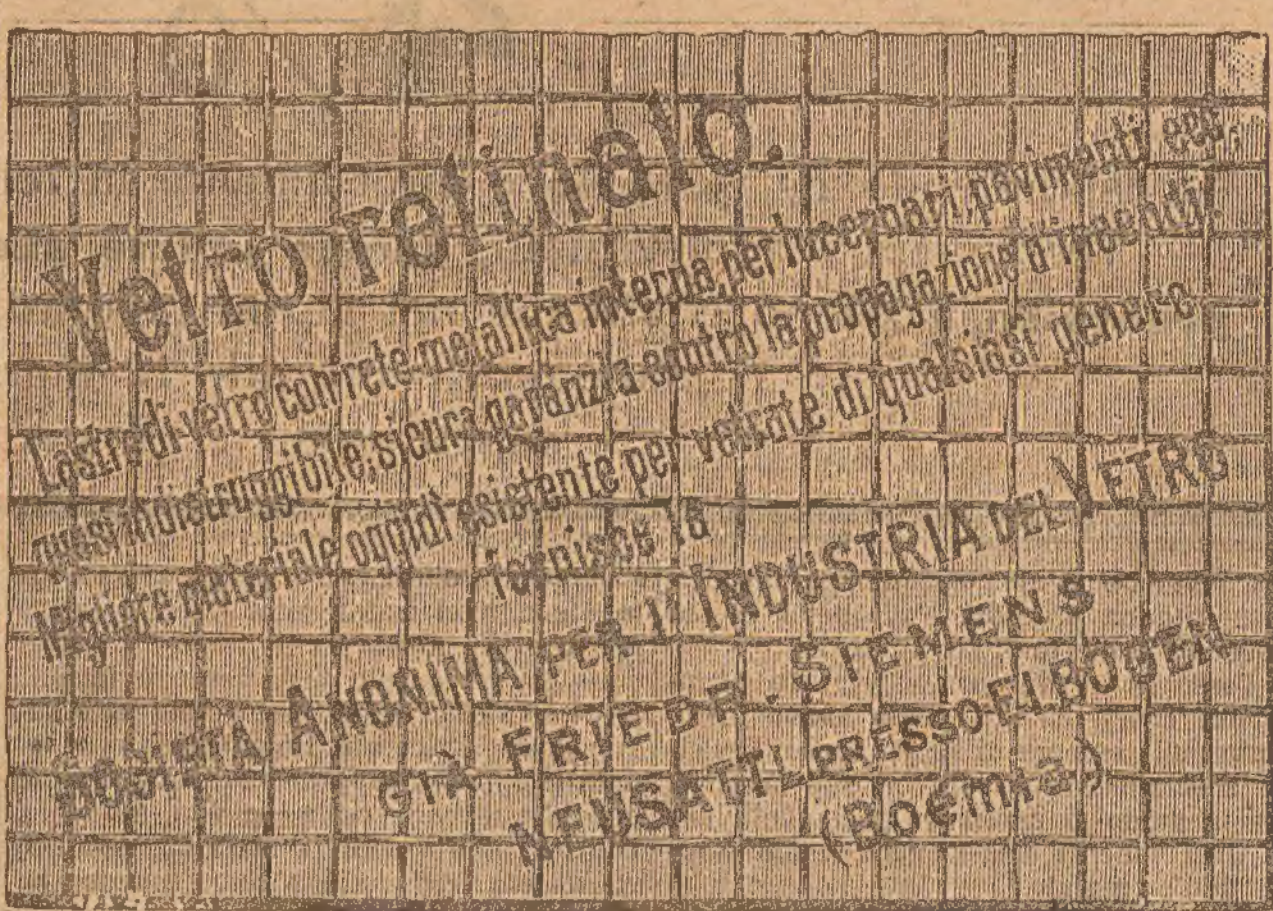 Vetro retinato.
Lastre di vetro con rete metallica interna, per lucernari, pavimenti ecc.
quasi indistruggibile; sicura garanzia contro la propagazione d'incendi.
Migliore materiale oggidì esistente per vetrate di qualsiasi genere
fornisce la
SOCIETÀ ANONIMA PER L'INDUSTRIA DEL VETRO
GIÀ FRIEDR. SIEMENS
NEUSATTL PRESSO ELBOGEN
(Boemia)